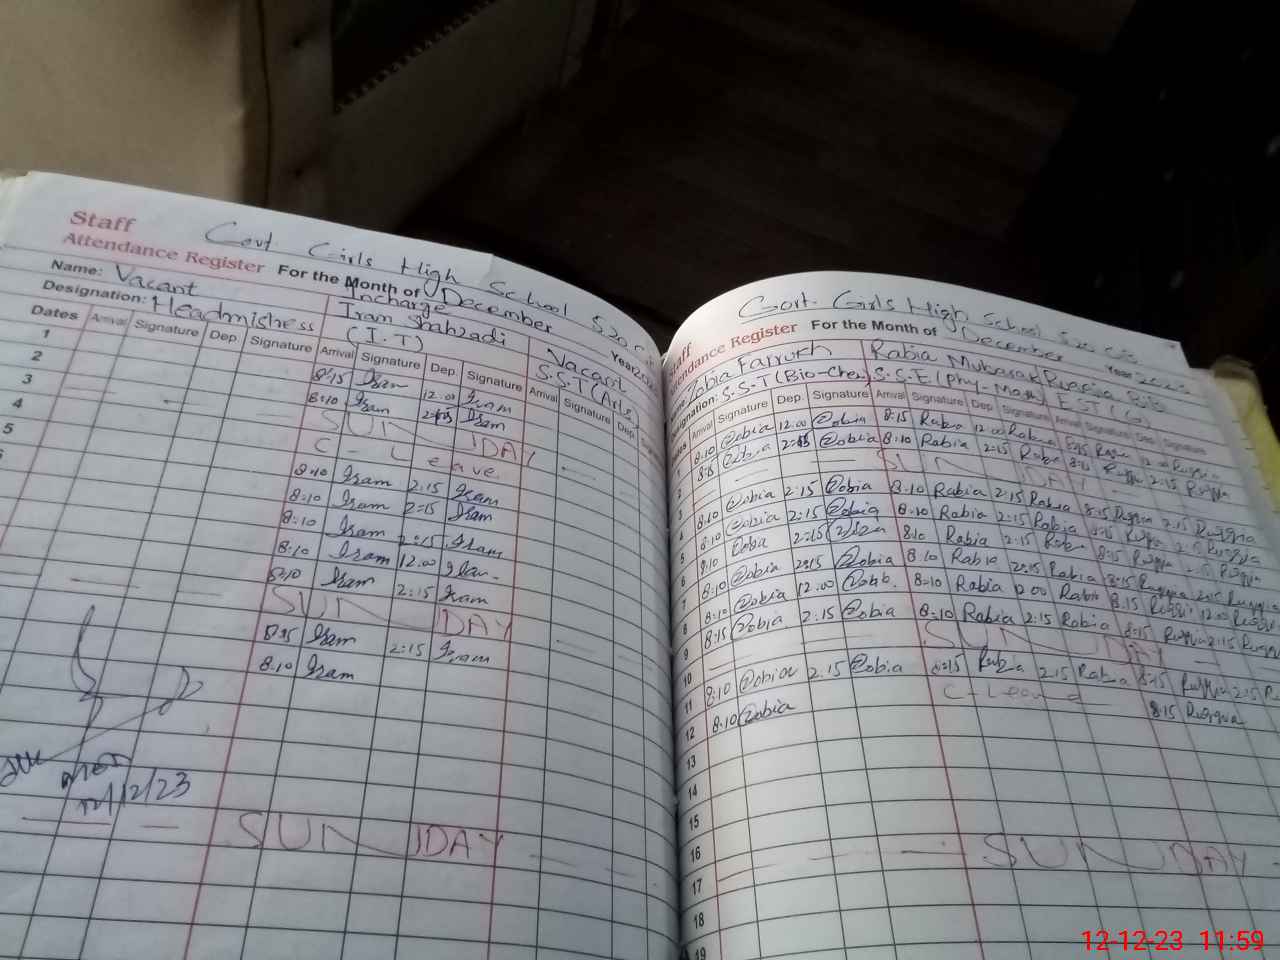 Staff Govt. Girls High School
Attendance Register For the Month of December
Name: Vacant Incharge Iram Shahzadi Vacant
Designation: Headmistress (I.T) S.S.T (Arts)
Dates Arrival Signature Dep. Signature Arrival Signature Dep. Signature Arrival Signature Dep.
1 8:15 Iram 12.00 Iram
2 8:10 Iram 2:15 Iram
3 SUNDAY
4 C - Leave
5 8:10 Iram 2:15 Iram
8:10 Iram 2:15 Iram
8:10 Iram 2:15 Iram
8:10 Iram 12.00 Iram
8:10 Iram 2:15 Iram
SUNDAY
8:15 Iram 2:15 Iram
8:10 Iram
12/12/23
SUNDAY
Govt. Girls High School
Attendance Register For the Month of December Year
Zobia Farrukh Rabia Mubarak Ruqqia Bibi
S.S.T (Bio-Chem) S.S.E (Phy-Math) EST
Signature Dep. Signature Arrival Signature Dep. Signature Arrival Signature Dep. Signature
1 8:10 Zobia 12.00 Zobia 8:15 Rabia 12.00 Rabia 8:15 Ruqqia 12.00 Ruqqia
2 8:15 Zobia 2:15 Zobia 8:10 Rabia 2:15 Rabia 8:15 Ruqqia 2:15 Ruqqia
3 SUNDAY
4 8:10 Zobia 2:15 Zobia 8:10 Rabia 2:15 Rabia 8:15 Ruqqia 2:15 Ruqqia
5 8:10 Zobia 2:15 Zobia 8:10 Rabia 2:15 Rabia 8:15 Ruqqia 2:15 Ruqqia
6 8:10 Zobia 2:15 Zobia 8:10 Rabia 2:15 Rabia 8:15 Ruqqia 2:15 Ruqqia
7 8:10 Zobia 2:15 Zobia 8:10 Rabia 2:15 Rabia 8:15 Ruqqia 2:15 Ruqqia
8 8:10 Zobia 12.00 Zobia 8:10 Rabia 12.00 Rabia 8:15 Ruqqia 12.00 Ruqqia
9 8:15 Zobia 2:15 Zobia 8:10 Rabia 2:15 Rabia 8:15 Ruqqia 2:15 Ruqqia
10 SUNDAY
11 8:10 Zobia 2.15 Zobia 8:15 Rabia 2:15 Rabia 8:15 Ruqqia 2:15
12 8.10 Zobia C-Leave 8:15 Ruqqia
13
14
15
16
17 SUNDAY
18
19
12-12-23 11:59